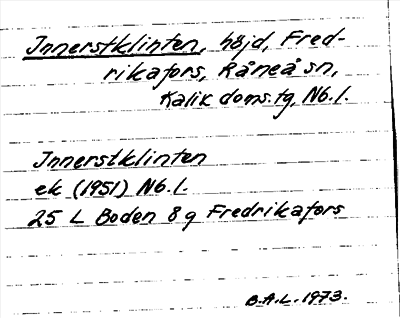 Innerstklinten, höjd, Fred-
rikafors, Råneå sn,
Kalix doms.tg, Nb.l.
Innerstklinten
ek (1951) Nb.l.
25 L Boden 8g Fredrikafors
B.A.L. 1973.